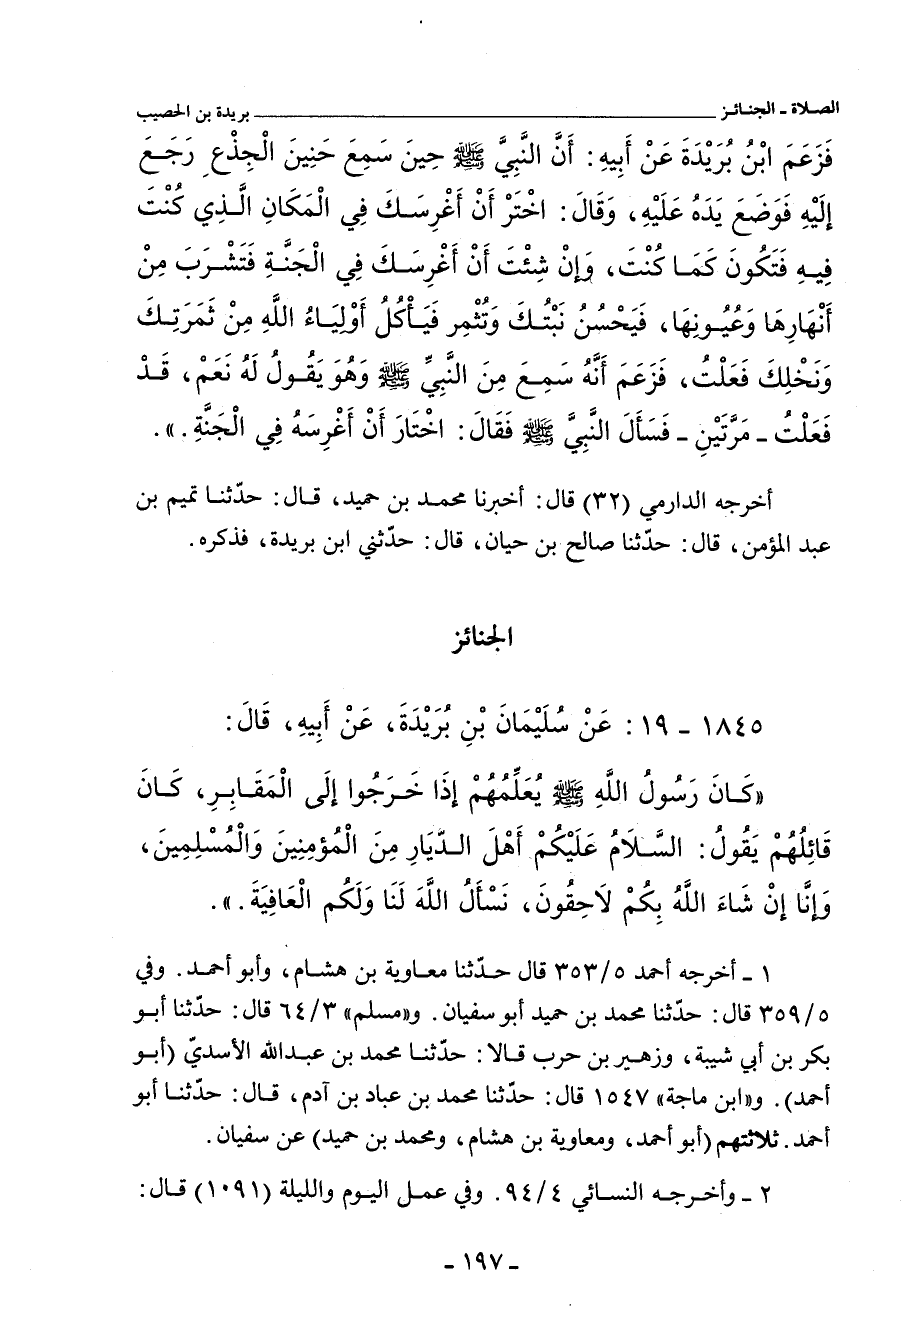 الصلاة - الجنائز ــــــــــــــــــــــــــــــــــــــ بريدة بن الحصيب
فَزَعَمَ ابْنُ بُرَيْدَةَ عَنْ أَبِيهِ: أَنَّ النَّبِيَّ ﷺ حِينَ سَمِعَ حَنِينَ الْجِذْعِ رَجَعَ
إِلَيْهِ فَوَضَعَ يَدَهُ عَلَيْهِ، وَقَالَ: اخْتَرْ أَنْ أَغْرِسَكَ فِي الْمَكَانِ الَّذِي كُنْتَ
فِيهِ فَتَكُونَ كَمَا كُنْتَ، وَإِنْ شِئْتَ أَنْ أَغْرِسَكَ فِي الْجَنَّةِ فَتَشْرَبَ مِنْ
أَنْهَارِهَا وَعُيُونِهَا، فَيَحْسُنُ نَبْتُكَ وَتُثْمِر فَيَأْكُلُ أَوْلِيَاءُ اللَّهِ مِنْ ثَمَرَتِكَ
وَنَخْلِكَ فَعَلْتُ، فَزَعَمَ أَنَّهُ سَمِعَ مِنَ النَّبِيِّ ﷺ وَهُوَ يَقُولُ لَهُ نَعَمْ، قَدْ
فَعَلْتُ - مَرَّتَيْنِ - فَسَأَلَ النَّبِيَّ ﷺ فَقَالَ: اخْتَارَ أَنْ أَغْرِسَهُ فِي الْجَنَّةِ.».
أخرجه الدارمي (٣٢) قال: أخبرنا محمد بن حميد، قال: حدّثنا تميم بن
عبد المؤمن، قال: حدّثنا صالح بن حيان، قال: حدّثني ابن بريدة، فذكره.
الجنائز
١٨٤٥ - ١٩: عَنْ سُلَيْمَانَ بْنِ بُرَيْدَةَ، عَنْ أَبِيهِ، قَالَ:
«كَانَ رَسُولُ اللَّهِ ﷺ يُعَلِّمُهُمْ إِذَا خَرَجُوا إِلَى الْمَقَابِرِ، كَانَ
قَائِلُهُمْ يَقُولُ: السَّلَامُ عَلَيْكُمْ أَهْلَ الدِّيَارِ مِنَ الْمُؤْمِنِينَ وَالْمُسْلِمِينَ،
وَإِنَّا إِنْ شَاءَ اللَّهُ بِكُمْ لَاحِقُونَ، نَسْأَلُ اللَّهَ لَنَا وَلَكُمُ الْعَافِيَةَ.».
١ - أخرجه أحمد ٣٥٣/٥ قال حدّثنا معاوية بن هشام، وأبو أحمد. وفي
٣٥٩/٥ قال: حدّثنا محمد بن حميد أبو سفيان. و«مسلم» ٦٤/٣ قال: حدّثنا أبو
بكر بن أبي شيبة، وزهير بن حرب قالا: حدّثنا محمد بن عبدالله الأسديّ (أبو
أحمد). و«ابن ماجة» ١٥٤٧ قال: حدّثنا محمد بن عباد بن آدم، قال: حدّثنا أبو
أحمد. ثلاثتهم (أبو أحمد، ومعاوية بن هشام، ومحمد بن حميد) عن سفيان.
٢ - وأخرجه النسائي ٩٤/٤. وفي عمل اليوم والليلة (١٠٩١) قال:
- ١٩٧ -